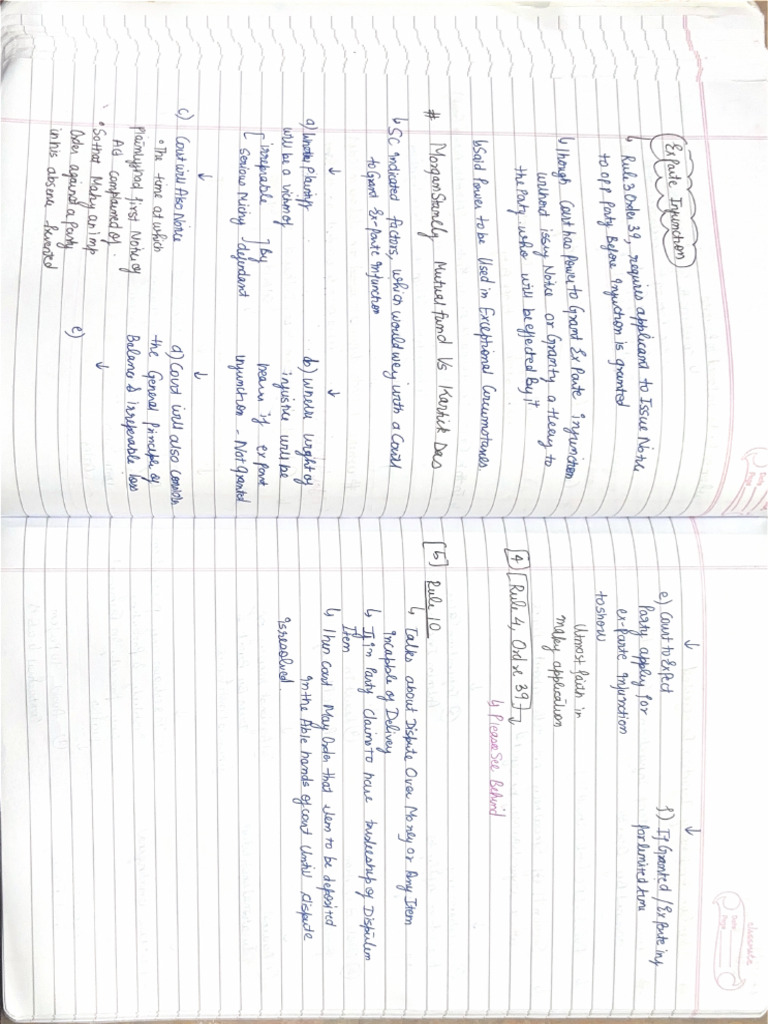 Ex Parte Injunction
↳ Rule 3 Order 39, requires applicant to Issue Notice
to opp Party Before Injuction is granted
↳ Though Court has Power to Grand Ex Parte injunction
without issuy Notice or Granity a Heary to
the Party who will be effected By it
↳ Said Power to be Used in Exceptional Circumstances.
# Morgan Stanely Mutual fund Vs Kartick Das
↳ SC indicated factors, which would wey with a Court
to Grant Ex-Parte Injunction
↓
↓
a) Wheter Plaintiff
will be a victim of
[ irreperable ] by
[ serious Nichy defendant
b) Where wight of
injustice will be
mean if expart
injunction - Not granted
↓
↓
c) Court will Also Notice
• The time at which
Plaintiff had first Notice of
Act complained of.
• So that Makiy an imp
Order against a Party
in his absense - Prevented
d) Court will also consider
the General Principle of
Balance & irreperable loss
↓
e)
↓
↓
e) Court to Expect
Party apply for
ex-parte Injunction
to show
Utmost faith in
makiy application
f) If Granted / Ex Parte inj
for limited time
[4] [Rule 4, Order 39]
↳ Please See Behind
[5] Rule 10
↳ Talks about Dispute Over Money or Any Item
Incapble of Delivery
↳ If in Party claims to have trusteeship of Disputem
Item
↳ Then Court May Order that item to be deposited
in the Able hands of court Until Dispute
is resolved.
classmate
Date
Page
Date
Page